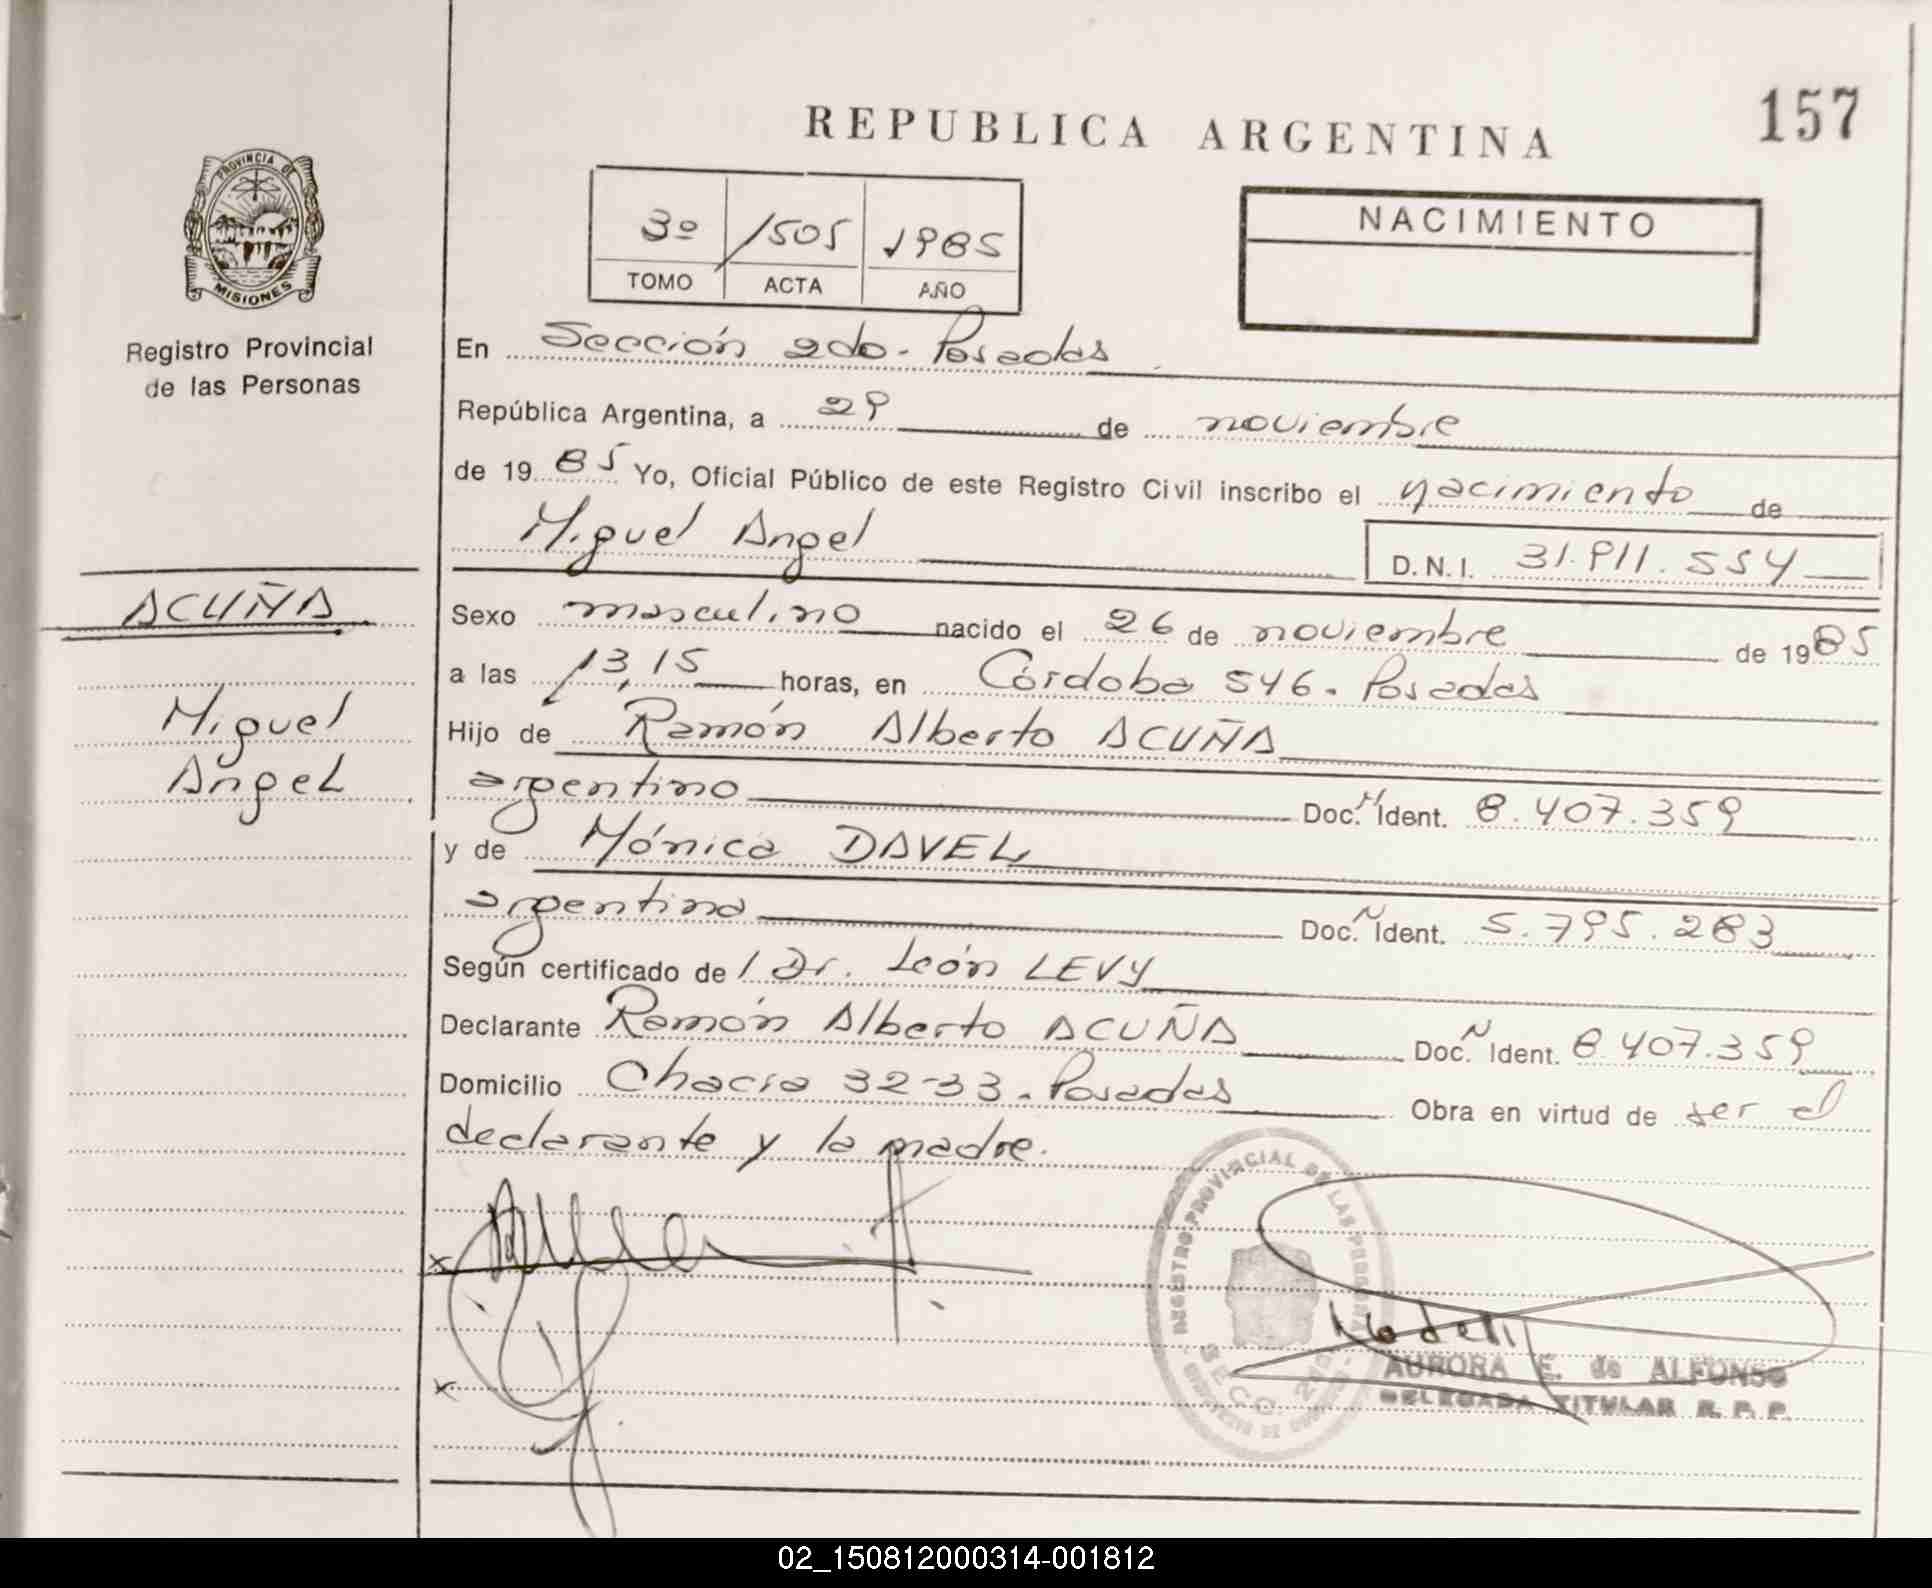 157
REPUBLICA ARGENTINA
PROVINCIA DE
MISIONES
Registro Provincial
de las Personas
3º 1505 1985
TOMO ACTA AÑO
NACIMIENTO
En Sección 2do. Posadas
República Argentina, a 29 de noviembre
de 1985 Yo, Oficial Público de este Registro Civil inscribo el nacimiento de
Miguel Angel D.N.I. 31.911.554
ACUÑA
Miguel
Angel
Sexo masculino nacido el 26 de noviembre de 1985
a las 13,15 horas, en Córdoba 546. Posadas
Hijo de Ramón Alberto ACUÑA
argentino Doc. N Ident. 8.407.359
y de Mónica DAVEL
argentina Doc. N Ident. 5.795.283
Según certificado de Dr. León LEVY
Declarante Ramón Alberto ACUÑA Doc. N Ident. 8.407.359
Domicilio Chacra 32-33. Posadas Obra en virtud de ser el
declarante y la madre.
REGISTRO PROVINCIAL DE LAS PERSONAS
SECC. 2da
AURORA E. de ALFONSO
DELEGADA TITULAR R. P. P.
02_150812000314-001812